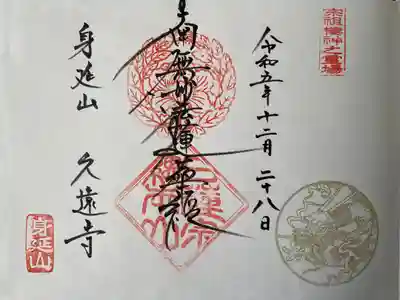 宗祖棲神之霊場
令和五年十二月二十八日
南無妙法蓮華経
身延山 久遠寺
身延山